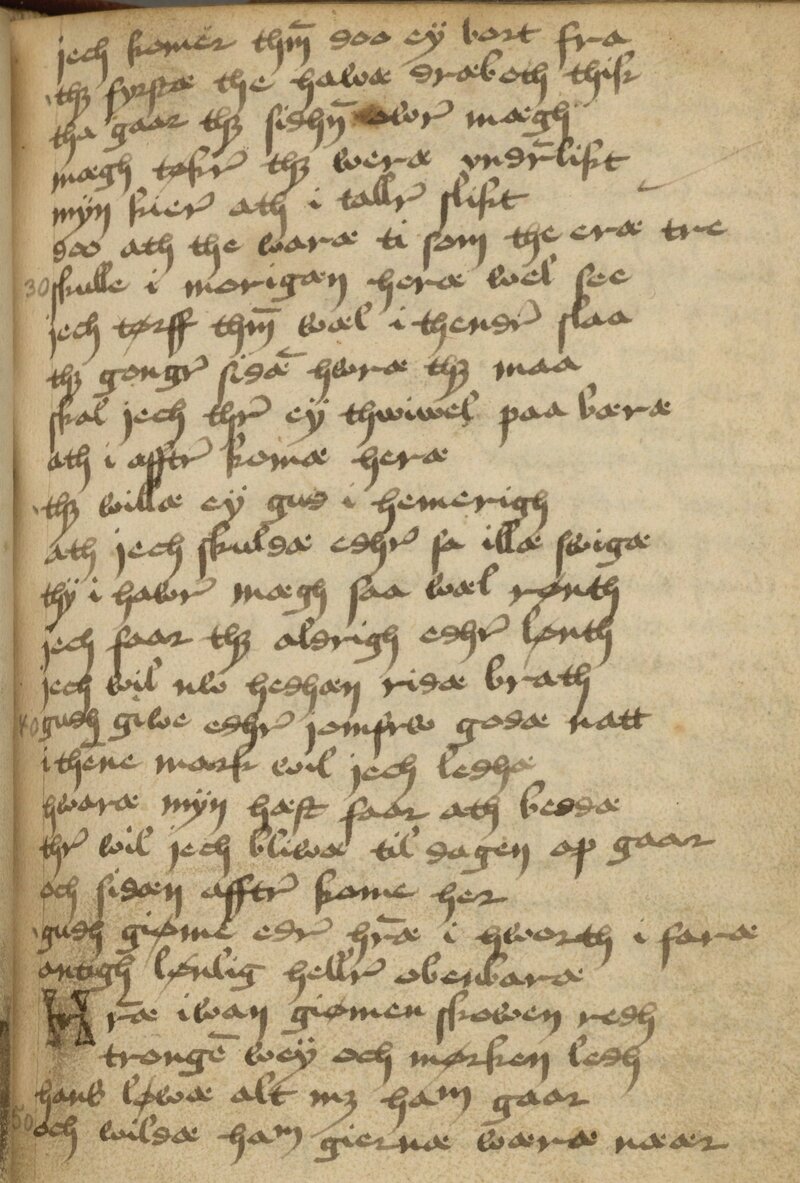 jech komer thm̄ doo ey bort fra
thꝫ fyrstæ the hawæ dræboth thik
tha gaar thꝫ sidhn̄ owr᷎ mægh
mægh tøkr᷎ thꝫ weræ vndr̄likt
myn kier᷎ ath i tallr᷎ slikt
doo ath the waræ ti som the eræ tre
30 skulle i morigæn heræ wel see
jech tørff thm̄ wæl i thendr᷎ slaa
thꝫ gongr᷎ sidǣ hwræ thꝫ maa
skal jech thr᷎ ey thwiwel paa bæræ
ath i afftr᷎ komæ heræ
thꝫ willæ ey gud i hemerigh
ath jech skuldæ edhr᷎ sa illæ swigæ
thy i hawr᷎ mægh saa wæl rønth
jech faar thꝫ aldrigh edhr᷎ lønth
jech wil nw hedhæn ridæ brath
40 gudh giwe edhr᷎ jomfrw godæ natt
i thēne mark wil jech ledhæ
hwaræ myn hæst faar ath beddæ
thr᷎ wil jech bliwæ til dagen op gaar
och sidæn afftr᷎ kome her
gudh giøme edr᷎ hr̄æ i hworth i faræ
antigh lønlig hellr᷎ obenbaræ
Hr̄æ iwan giømen skowen redh
trongē wey och mørken ledh
hans løwæ alt mꝫ ham gaar
50 och wildæ ham giernæ wæræ næær